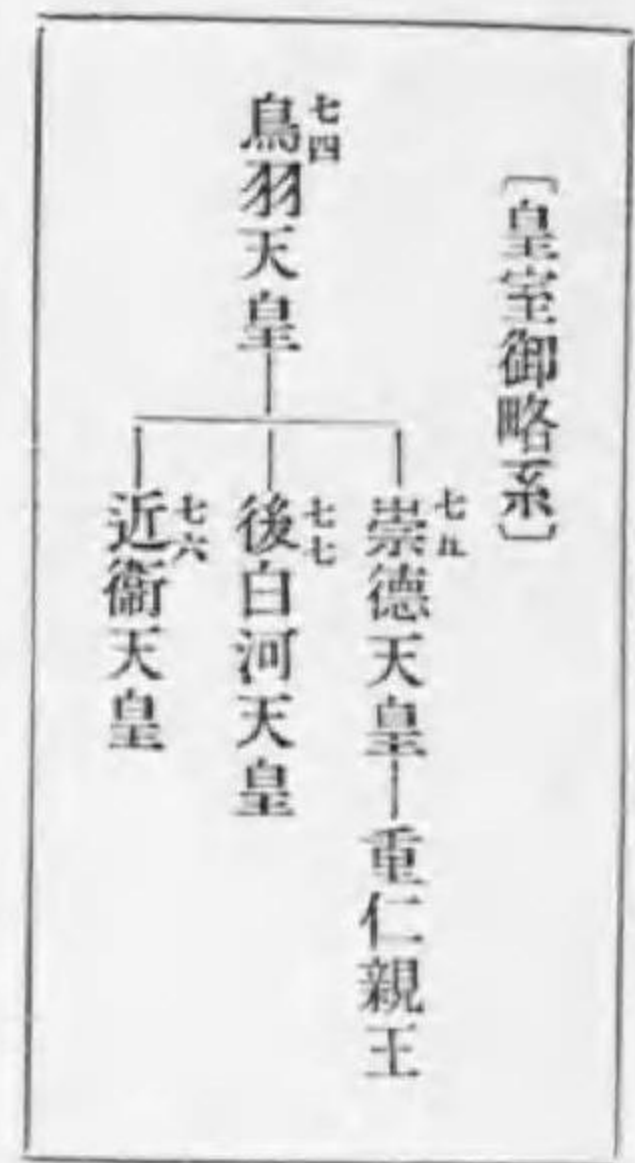 〔皇室御略系〕
七四
鳥羽天皇
七五
崇德天皇
重仁親王
七七
後白河天皇
七六
近衞天皇